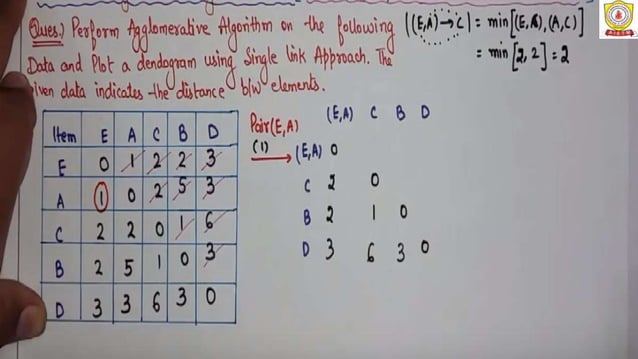 Ques:) Perform Agglomerative Algorithm on the following
Data and Plot a dendogram using Single link Approach. The
given data indicates the distance b/w elements.
|(E,A)→C| = min[(E,C),(A,C)]
= min[2,2] = 2
Item E A C B D
E 0 1 2 2 3
A 1 0 2 5 3
C 2 2 0 1 6
B 2 5 1 0 3
D 3 3 6 3 0
Pair(E,A)
(1)
(E,A) C B D
(E,A) 0
C 2 0
B 2 1 0
D 3 6 3 0